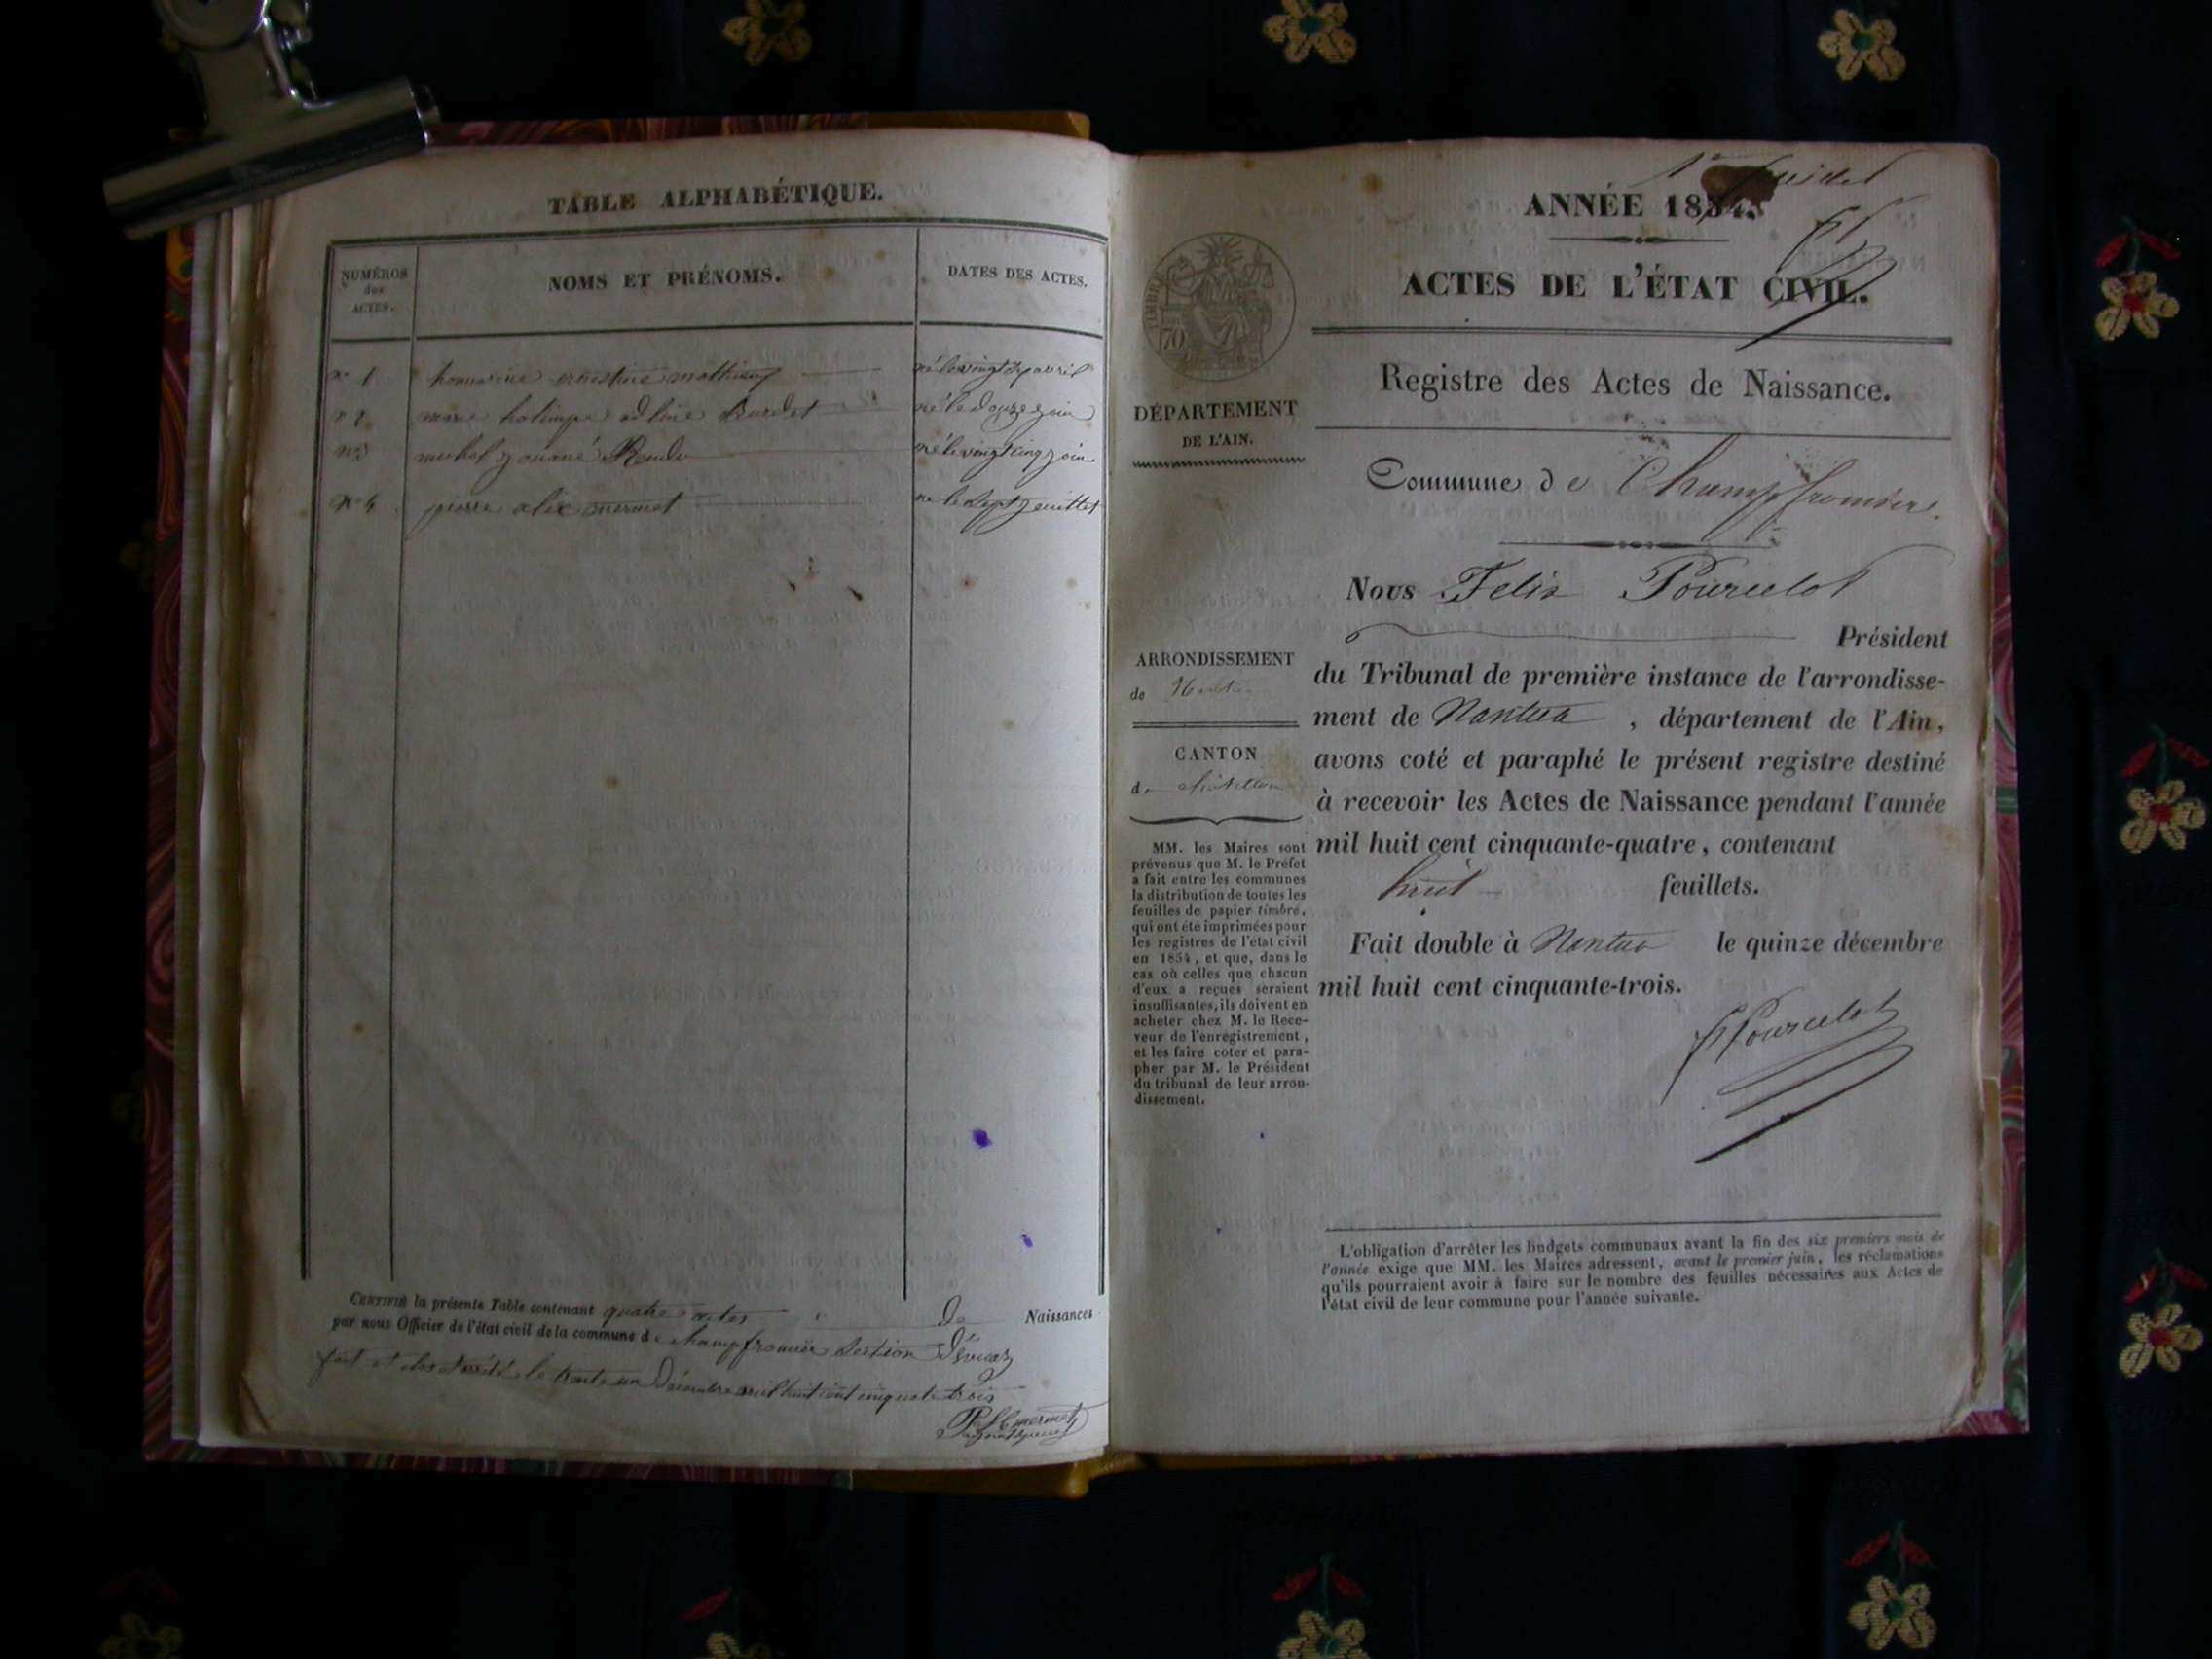 TABLE ALPHABÉTIQUE.
NUMÉROS
des
ACTES.
NOMS ET PRÉNOMS.
DATES DES ACTES.
n° 1 ernestine mathieu né le vingt avril
n° 2 marie holimpe adline Burdet né le douze join
n° 3 michel Rendu né le vingt cinq join
n° 4 pierre alix mermet né le sept jeuillet
CERTIFIÉ la présente Table contenant quatre actes de Naissances
par nous Officier de l'état civil de la commune de champfromier section d'évuaz
fait et clos arrété le trente un Décembre mil huit cent cinquate trois
mermet
1er feuillet
ANNÉE 1854.
ACTES DE L'ÉTAT CIVIL.
Registre des Actes de Naissance.
TIMBRE
70
DÉPARTEMENT
DE L'AIN.
Commune de Champfromier.
Nous Felix Pourcelot
Président
du Tribunal de première instance de l'arrondisse-
ment de Nantua, département de l'Ain,
avons coté et paraphé le présent registre destiné
à recevoir les Actes de Naissance pendant l'année
mil huit cent cinquante-quatre, contenant
huit feuillets.
Fait double à Nantua le quinze décembre
mil huit cent cinquante-trois.
F Pourcelot
ARRONDISSEMENT
de Nantua
CANTON
de Châtillon
MM. les Maires sont
prévenus que M. le Préfet
a fait entre les communes
la distribution de toutes les
feuilles de papier timbré,
qui ont été imprimées pour
les registres de l'état civil
en 1854, et que, dans le
cas où celles que chacun
d'eux a reçues seraient
insuffisantes, ils doivent en
acheter chez M. le Rece-
veur de l'enregistrement,
et les faire coter et para-
pher par M. le Président
du tribunal de leur arron-
dissement.
L'obligation d'arrêter les budgets communaux avant la fin des six premiers mois de
l'année exige que MM. les Maires adressent, avant le premier juin, les réclamations
qu'ils pourraient avoir à faire sur le nombre des feuilles nécessaires aux Actes de
l'état civil de leur commune pour l'année suivante.